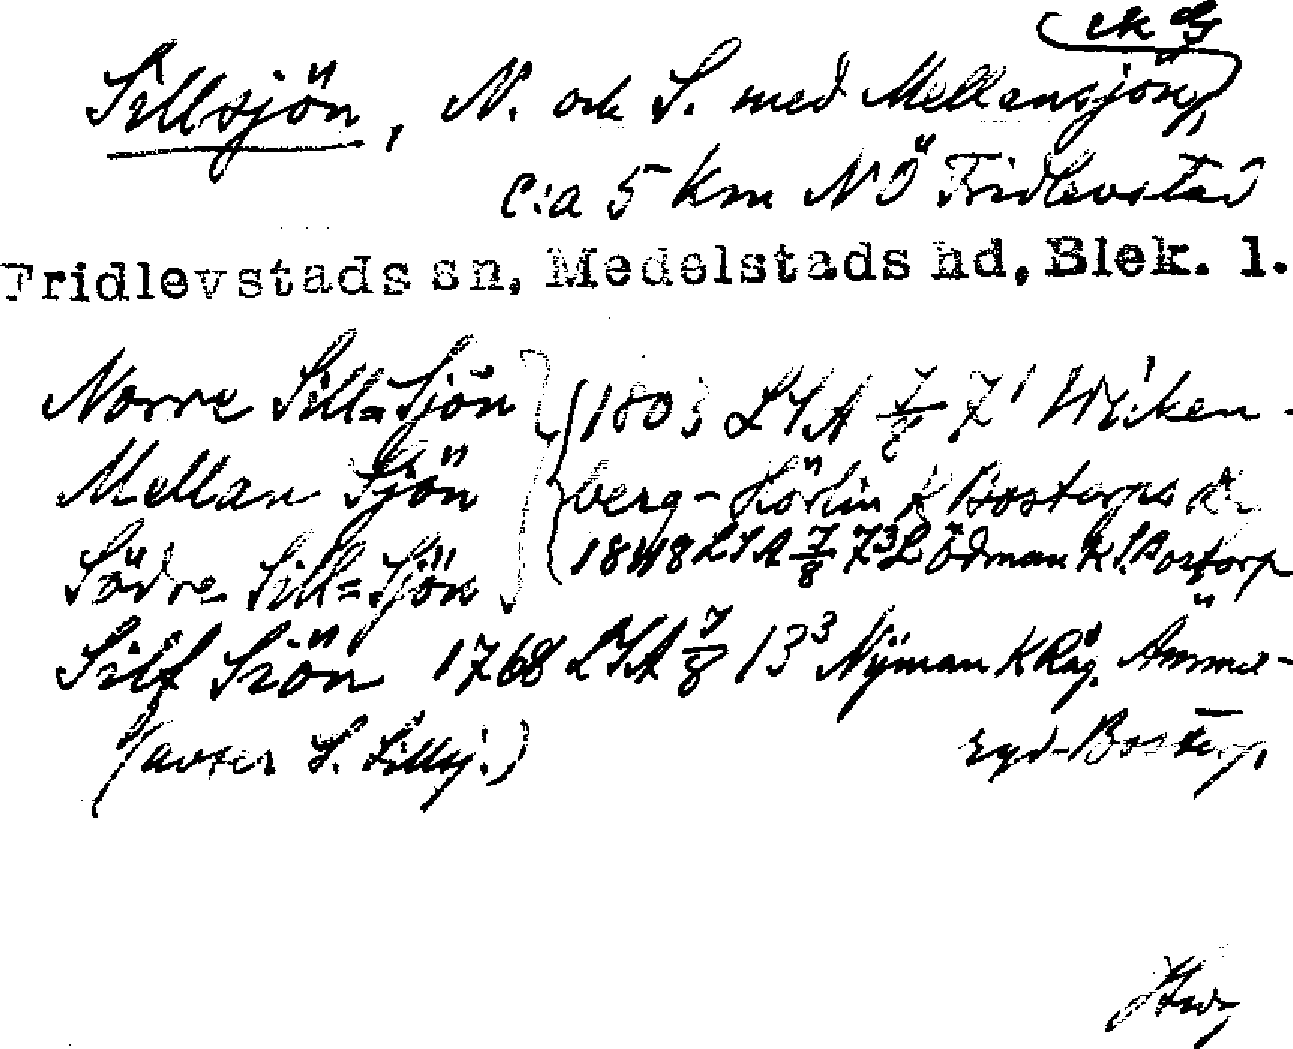 ek G
Sillsjön, N. och S. med Mellansjön,
c:a 5 km NÖ Fridlevstad
Fridlevstads sn, Medelstads hd, Blek. l.
Norre Sill=Sjön
Mellan Sjön
Södre Sill=Sjön
1803 LSA 7/8 7¹ Wicken-
berg-Hörlin K Bostorps
1848 LSA 7/8 7³ L Ödman K S. Bostorp
Silf Siön 1768 LSA 7/8 13³ Nyman K Råg. Ämme-
(avser S. Sillsj.) ryd-Bostorp